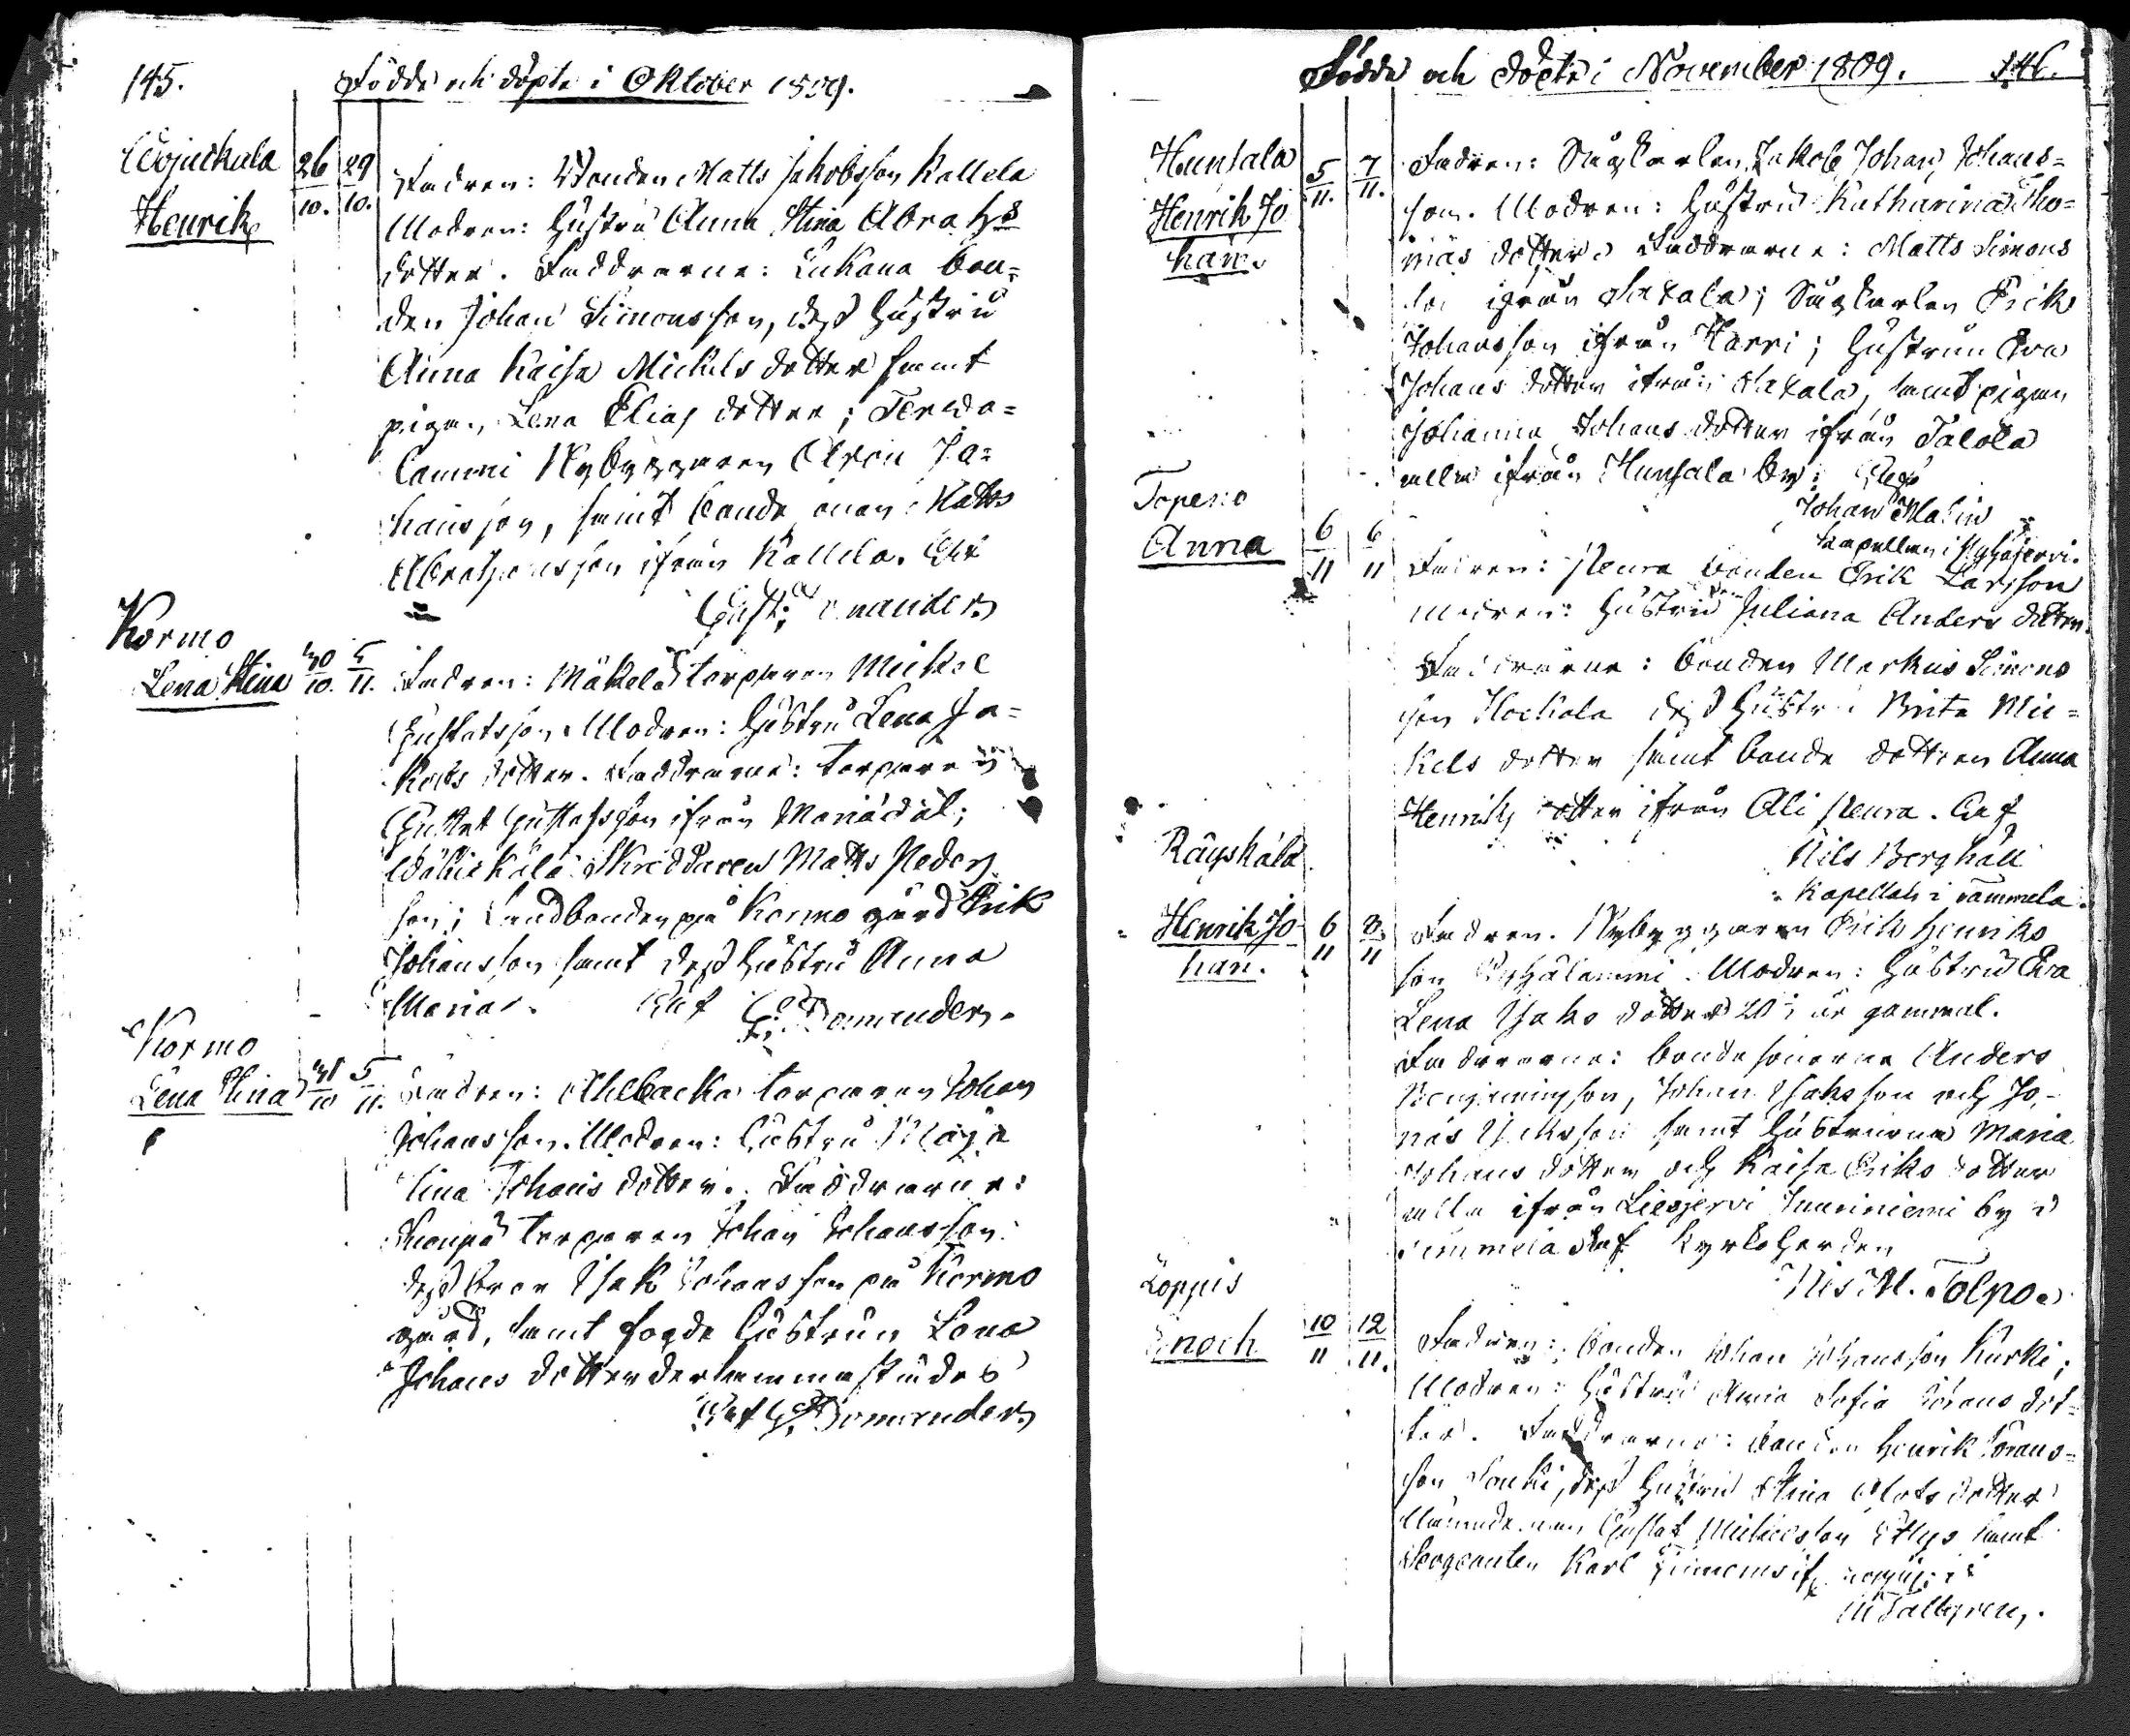 145.
Födde och döpte i Oktober 1809.
Wojuckala
Henrik
26/10. 29/10.
Fadren: Bonden Matts Jakobsson Kallela
Modren: Hustru Anna Stina Abrah
dotter. Faddrarne: Lukana bon=
den Johan Simonsson, dess Hustru
Anna Kaisa Mickels dotter samt
pigan Lena Elias dotter; Terwa=
lammi Nybyggaren Jo=
hansson, samt bonde Matts
Abrahamsson ifrån Kallela. 
Kormo
Lena Stina
30/10. 5/11.
Fadren: Mäkelä torparen Mickel
Gustafsson. Modren: Hustru Lena Ja=
kobs dotter. Faddrarne: torparen
Gustaf Gustafsson ifrån Mariädäl;
Skräddaren Matts Peders
son; Landbonden på Kormo gård Erik
Johansson samt dess Hustru Anna
Maria.
Kormo
Lena Stina
31/10 5/11.
Fadren: Ahlbacka torparen Johan
Johansson. Modren: Hustru Maja
Stina Johans dotter. Faddrarne:
torparen Johan Johansson
dess bror Isak Johansson på Kormo
gård, samt Hustrun Lena
Johans dotter derhemmastädes
Födde och döpte i November 1809.
146.
Hunsala
Henrik Jo
han.
5/11. 7/11.
Fadren: Jakob Johan Johans=
son. Modren: Hustru Katharina Tho=
mas dotter. Faddrarne: Matts Simons
son ifrån Saxala; Erik
Johansson ifrån Harri; Hustrun Eva
Johans dotter ifrån Saxala, samt pigan
Johanna Johans dotter ifrån Talola
alla ifrån Hunsala by:
Johan Malin
Kapellan i
Topeno
Anna
6/11 6/11
Fadren: Peura bonden Erik Larsson
Modren: Hustru Juliana Anders dotter.
Faddrarne: bonden Markus Simons
son dess Hustru Brita Mic=
kels dotter samt bonde dottren Anna
Henriks dotter ifrån Ali Peura. Af
Nils Berghäll
Kapellan i Tammela.
Räyskälä
Henrik Jo
han.
6/11 8/11
Fadren. Nybyggaren Erik Henriks
son Pyhälammi. Modren: Hustru Eva
Lena Isaks dotter 20 år gammal.
Faddrarne: bondesönerne Anders
Benjaminsson, Johan Isaksson och Jo=
nas Isaksson samt Hustrurna Maria
Johans dotter och Kaisa Eriks dotter
alla ifrån Liesjervi by i
Tammela af Kyrkoherden
Nils M. Tolpo.
Loppis
Enoch
10/11 12/11.
Fadren: bonden Johan Johansson Kurki;
Modren: Hustru Anna Sofia Görans dot=
ter. Faddrarne: bonden Henrik Görans=
son dess Hustru Stina Mats dotter
Gustaf Mickelsson samt
Sergeanten Karl
M Tallgren.